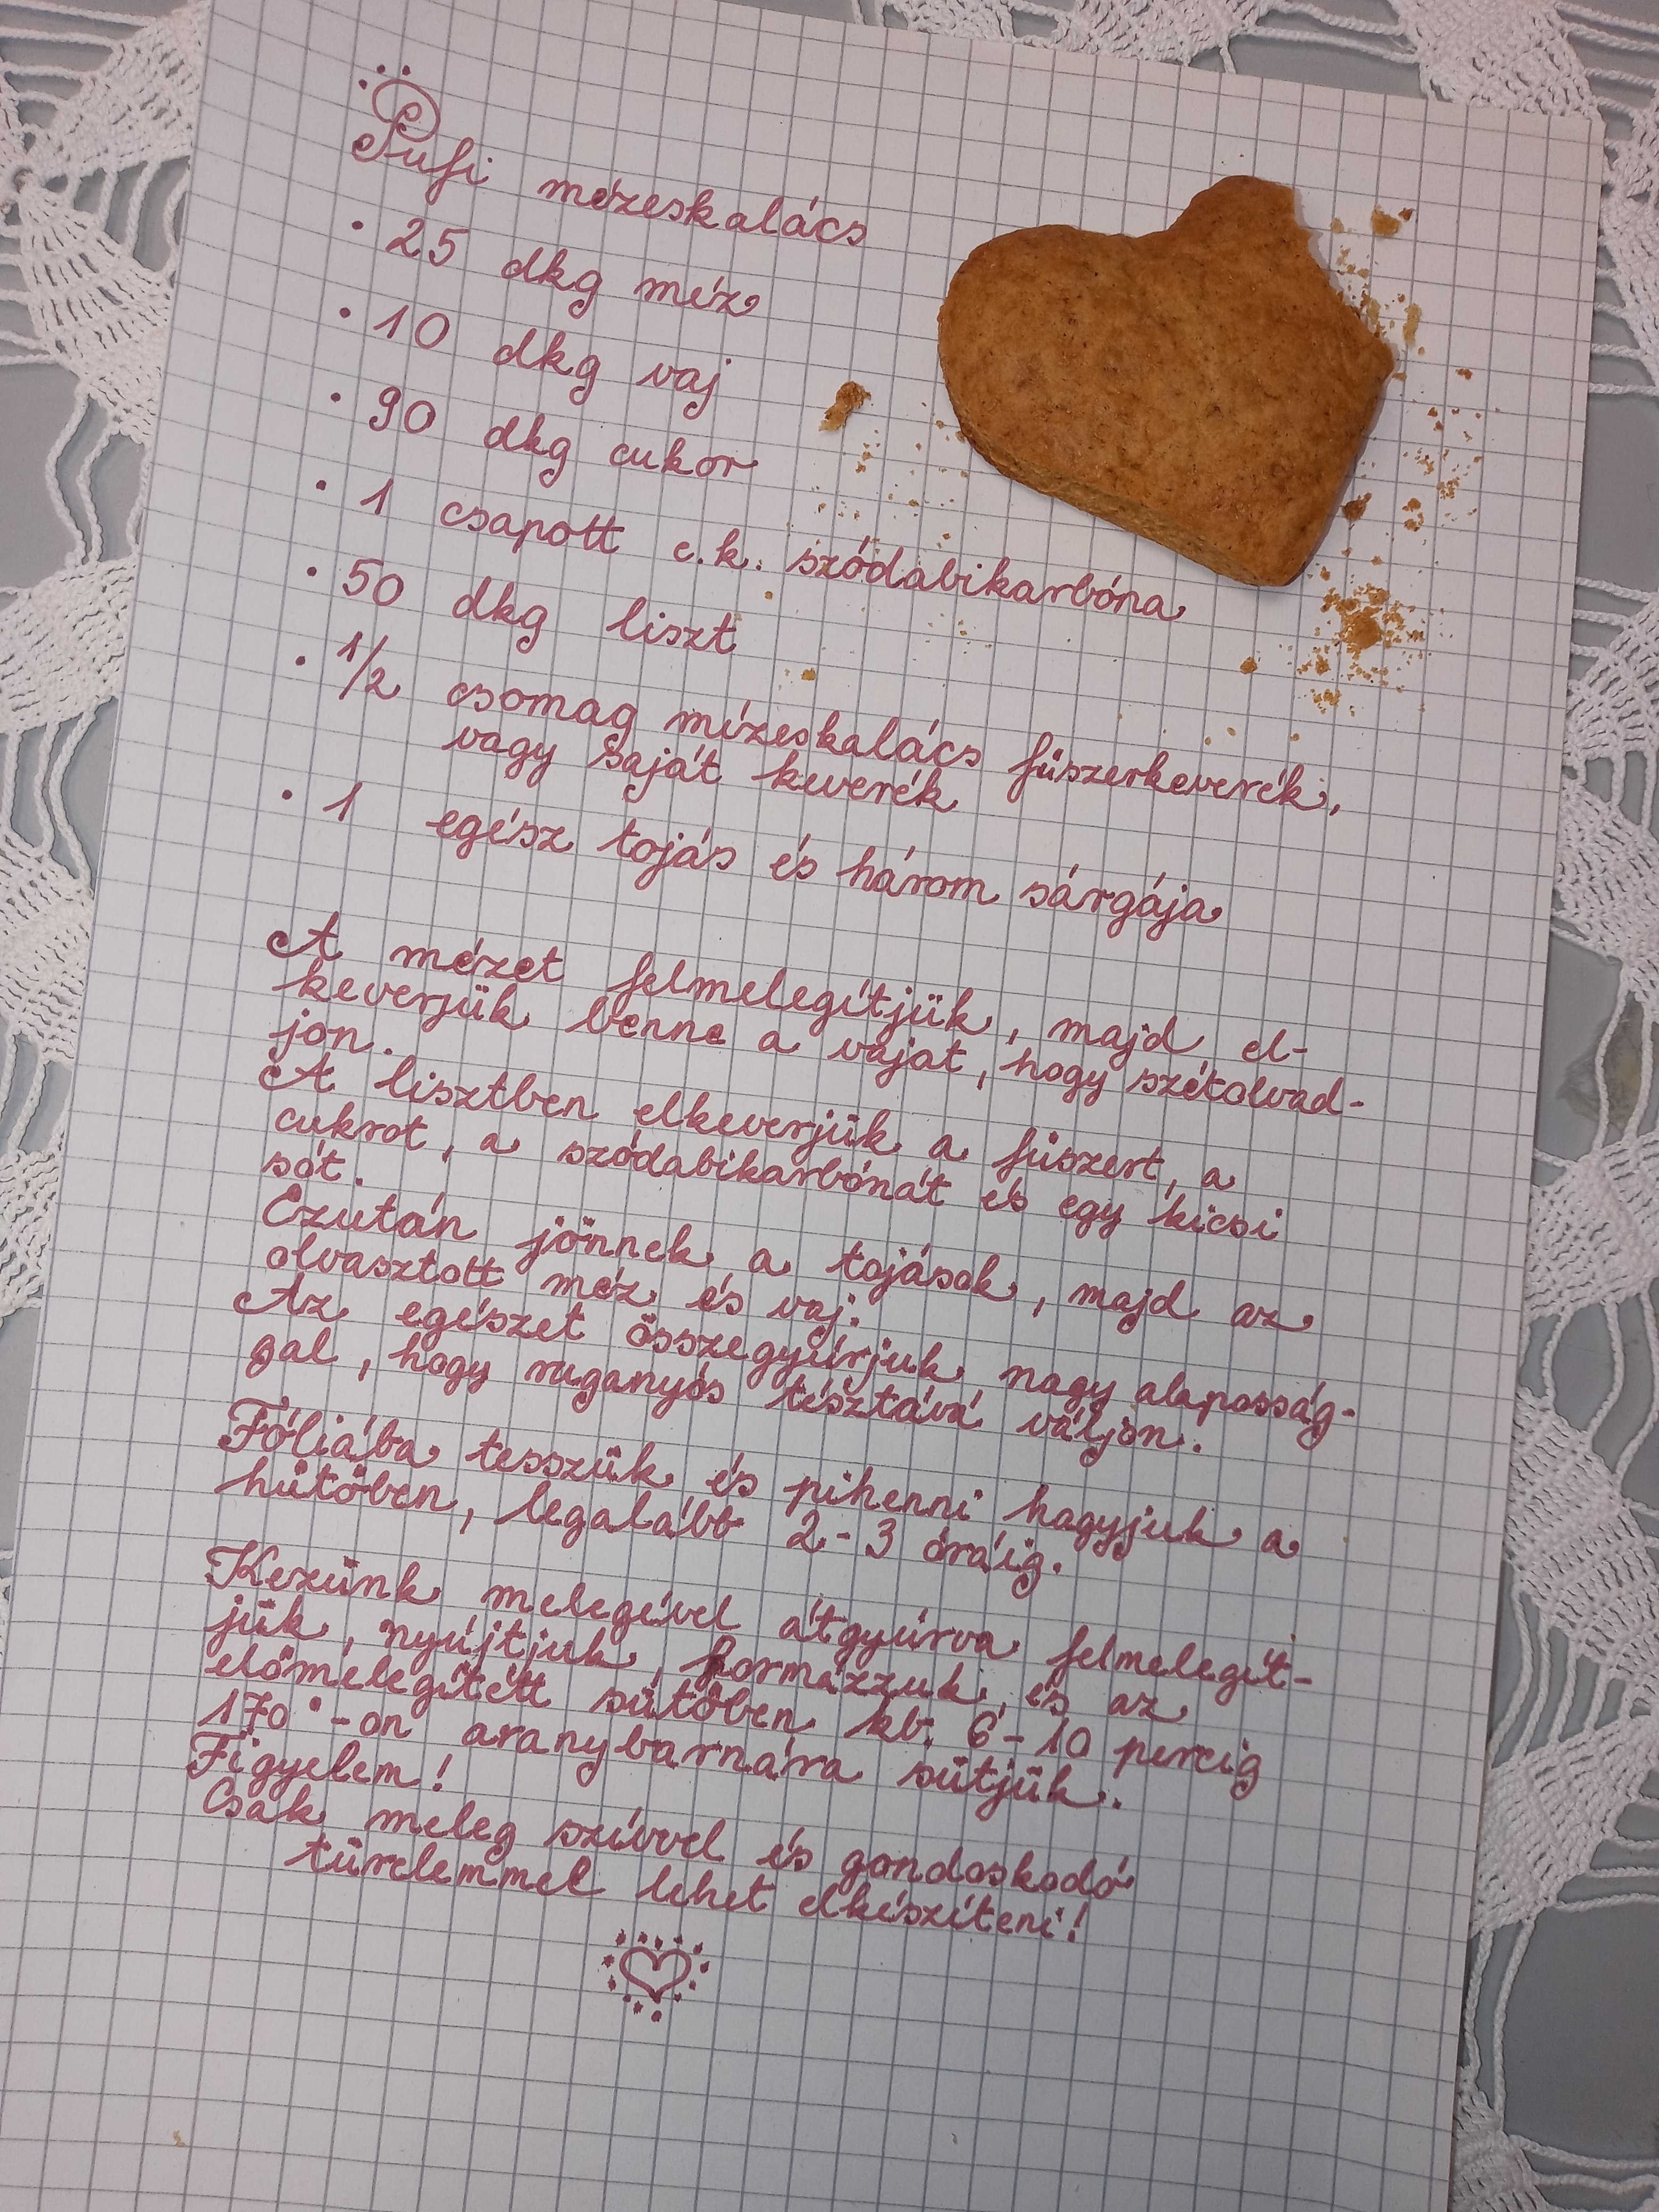 Pufi mézeskalács
• 25 dkg méz
• 10 dkg vaj
• 90 dkg cukor
• 1 csapott c.k. szódabikarbóna
• 50 dkg liszt
• 1/2 csomag mézeskalács fűszerkeverék,
vagy saját keverék
• 1 egész tojás és három sárgája
A mézet felmelegítjük, majd el-
keverjük benne a vajat, hogy szétolvad-
jon.
A lisztben elkeverjük a fűszert, a
cukrot, a szódabikarbónát és egy kicsi
sót.
Ezután jönnek a tojások, majd az
olvasztott méz és vaj.
Az egészet összegyúrjuk nagy alaposság-
gal, hogy ruganyos tésztává váljon.
Fóliába tesszük és pihenni hagyjuk a
hűtőben, legalább 2-3 óráig.
Kezünk melegével átgyúrva felmelegít-
jük, nyújtjuk, formázzuk, és az
előmelegített sütőben kb. 6-10 percig
170°-on aranybarnára sütjük.
Figyelem!
Csak meleg szívvel és gondoskodó
türelemmel lehet elkészíteni!